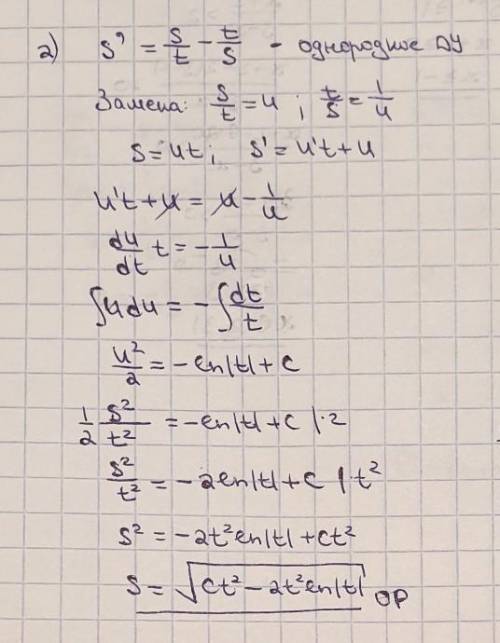 2) s' = s/t - t/s - однородное ДУ
Замена: s/t = u ; t/s = 1/u
s = ut; s' = u't + u
u't + u = u - 1/u
du/dt t = - 1/u
∫ u du = - ∫ dt/t
u²/2 = - ln|t| + c
1/2 s²/t² = - ln|t| + c | · 2
s²/t² = - 2ln|t| + c | · t²
s² = - 2t² ln|t| + ct²
s = √(ct² - 2t² ln|t|) ОР